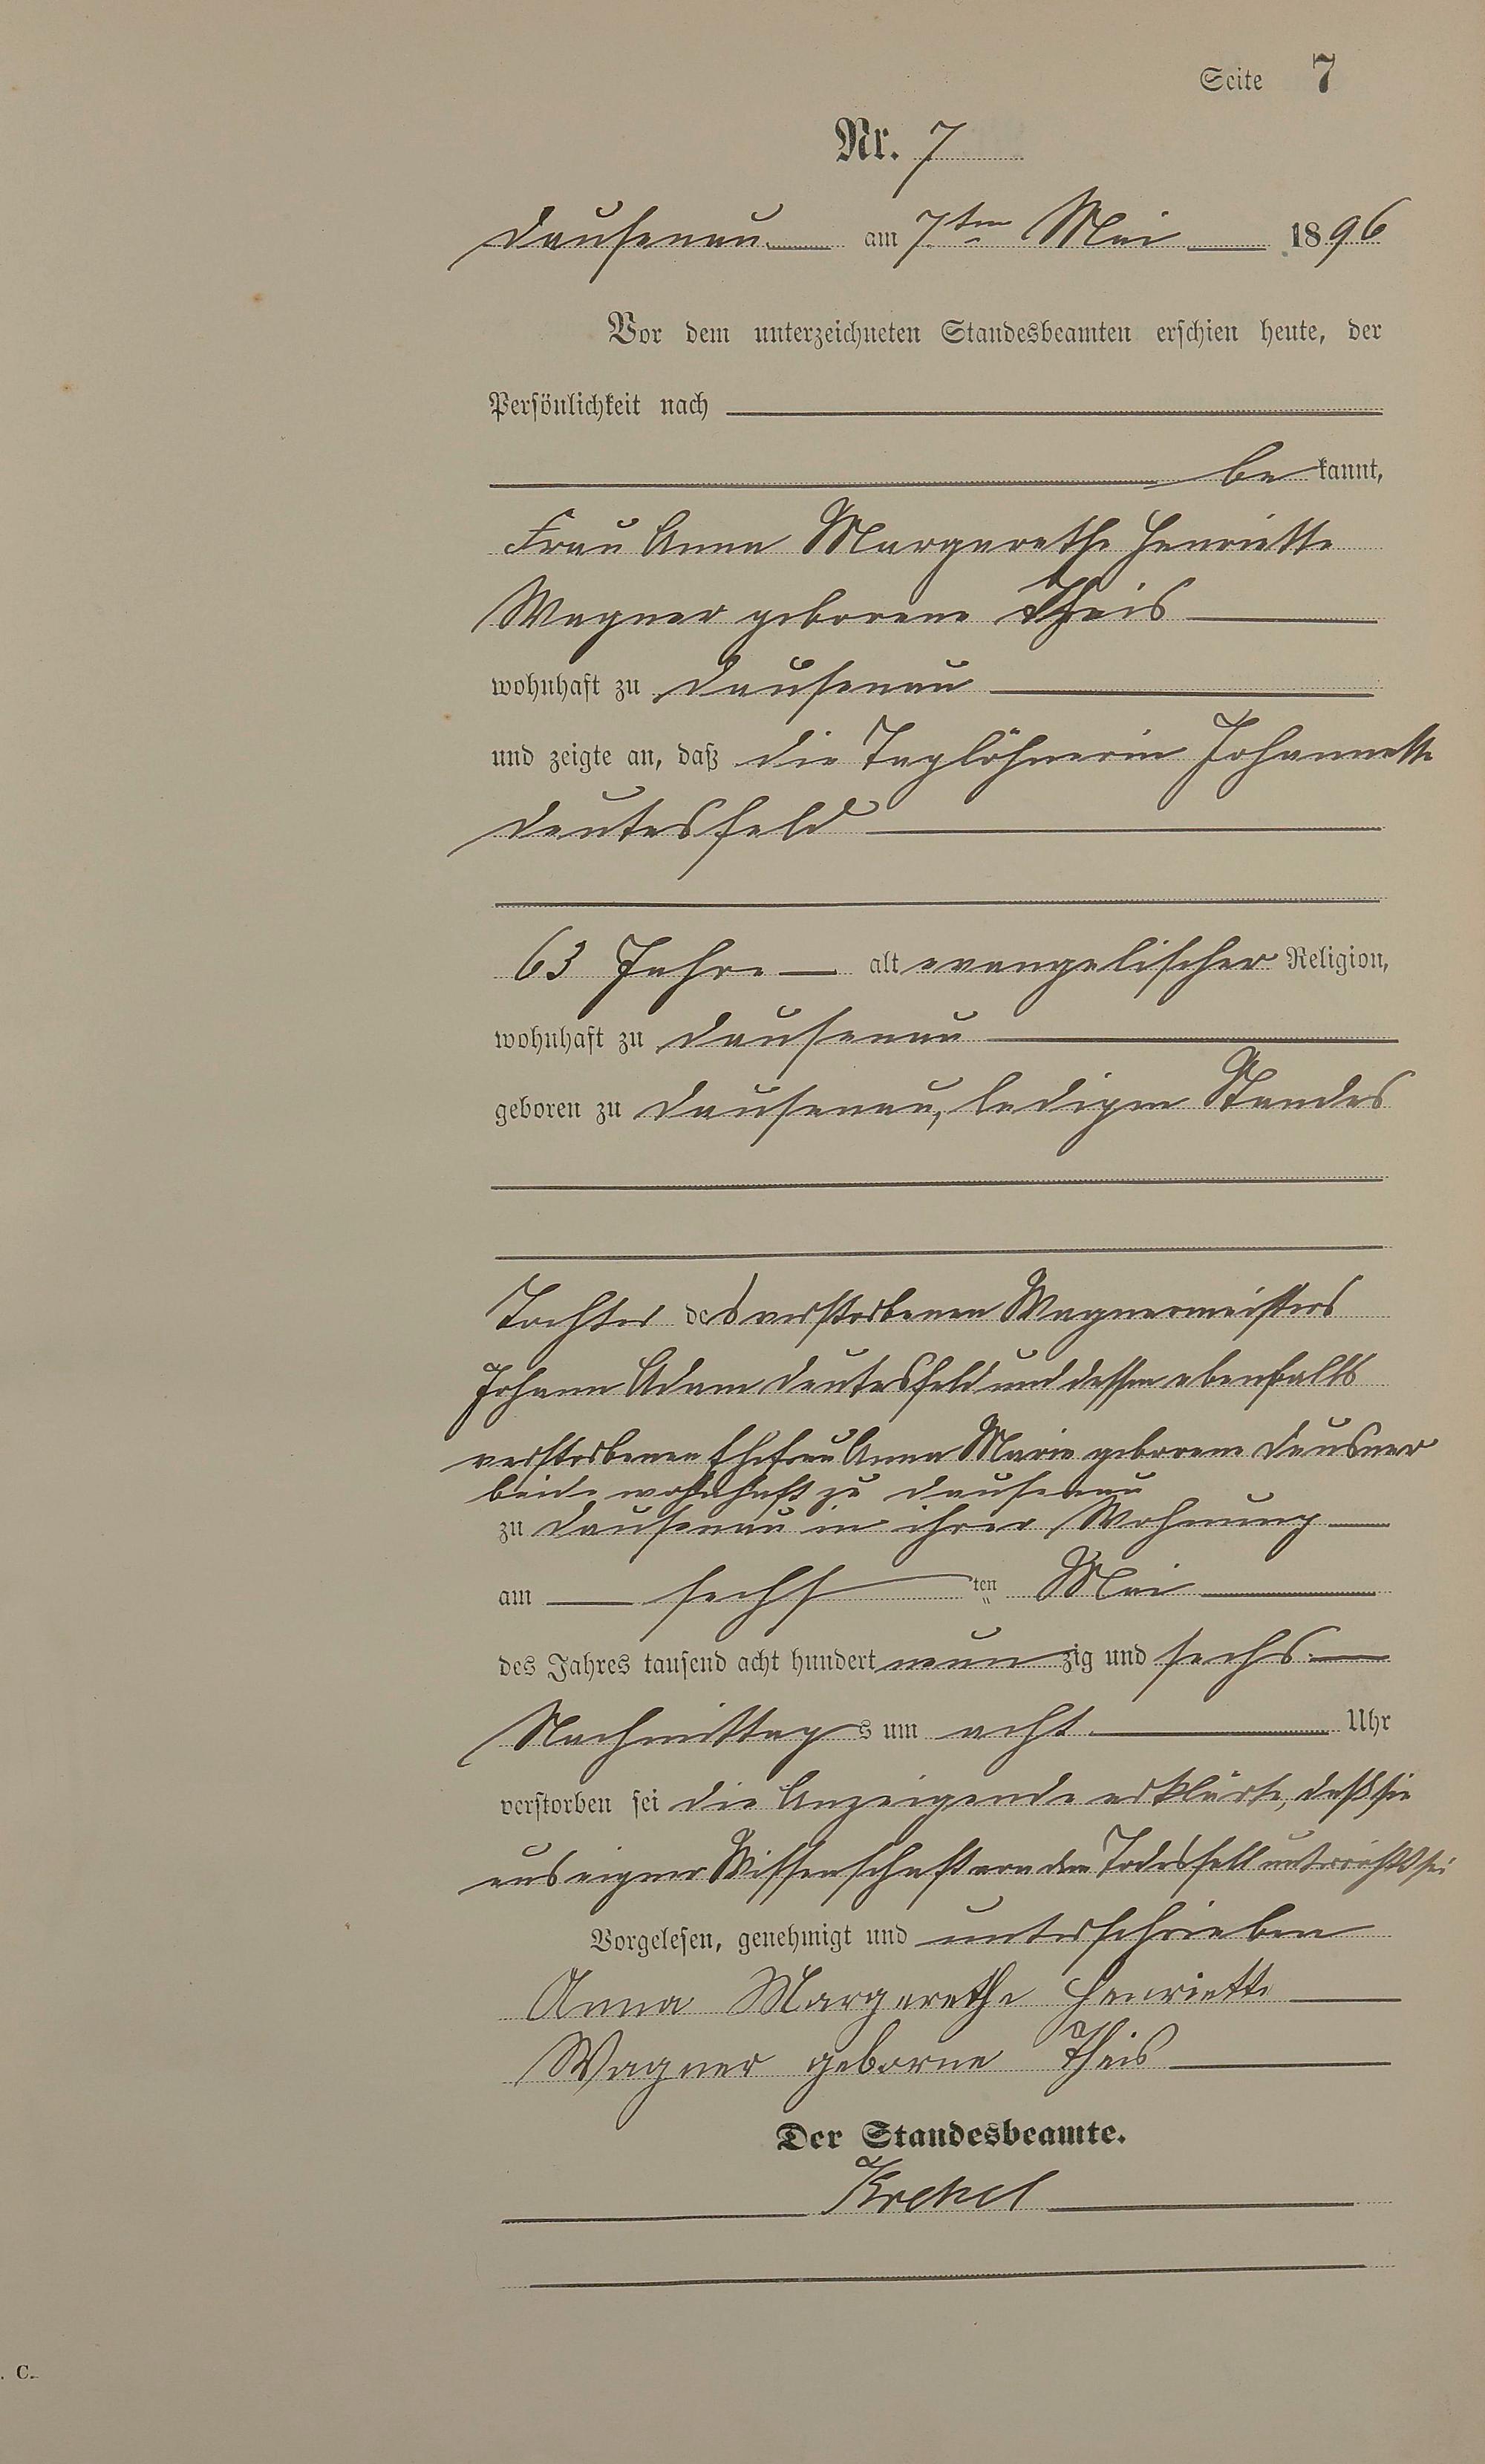 Seite 7
Nr. 7
Dausenau am 7ten Mai 1896
Vor dem unterzeichneten Standesbeamten erschien heute, der
Persönlichkeit nach
be kannt,
Frau Anna Margarethe Henriette
Wagner geborene Theis
wohnhaft zu Dausenau
und zeigte an, daß die Taglöhnerin Johannette
Deutesfeld
63 Jahre alt evangelischer Religion,
wohnhaft zu Dausenau
geboren zu Dausenau, ledigen Standes
Tochter des verstorbenen Wagnermeisters
Johann Adam Deutesfeld und dessen ebenfalls
verstorbenen Ehefrau Anna Marie geborene Deusner
beide wohnhaft zu Dausenau
zu Dausenau in ihrer Wohnung
am sechs ten Mai
des Jahres tausend acht hundert neun zig und sechs
Nachmittag s um acht Uhr
verstorben sei die Anzeigende erklärte, daß sie
aus eigner Wissenschaft von dem Todesfall unterrichtet sei
Vorgelesen, genehmigt und unterschrieben
Anna Margarethe Henriette
Wagner geborne Theis
Der Standesbeamte.
Krekel
C.